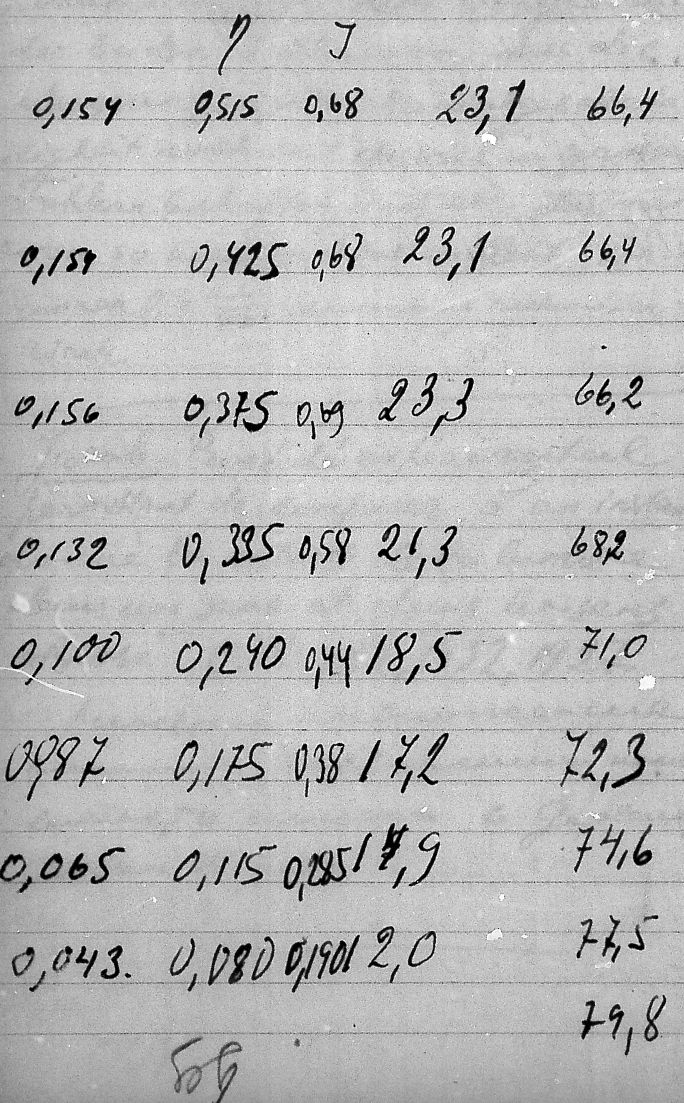 η J
0,154 0,515 0,68 23,1 66,4
0,154 0,425 0,68 23,1 66,4
0,156 0,375 0,69 23,3 66,2
0,132 0,335 0,58 21,3 68,2
0,100 0,240 0,44 18,5 71,0
0,087 0,175 0,38 17,2 72,3
0,065 0,115 0,285 14,9 74,6
0,043. 0,080 0,190 12,0 77,5
79,8